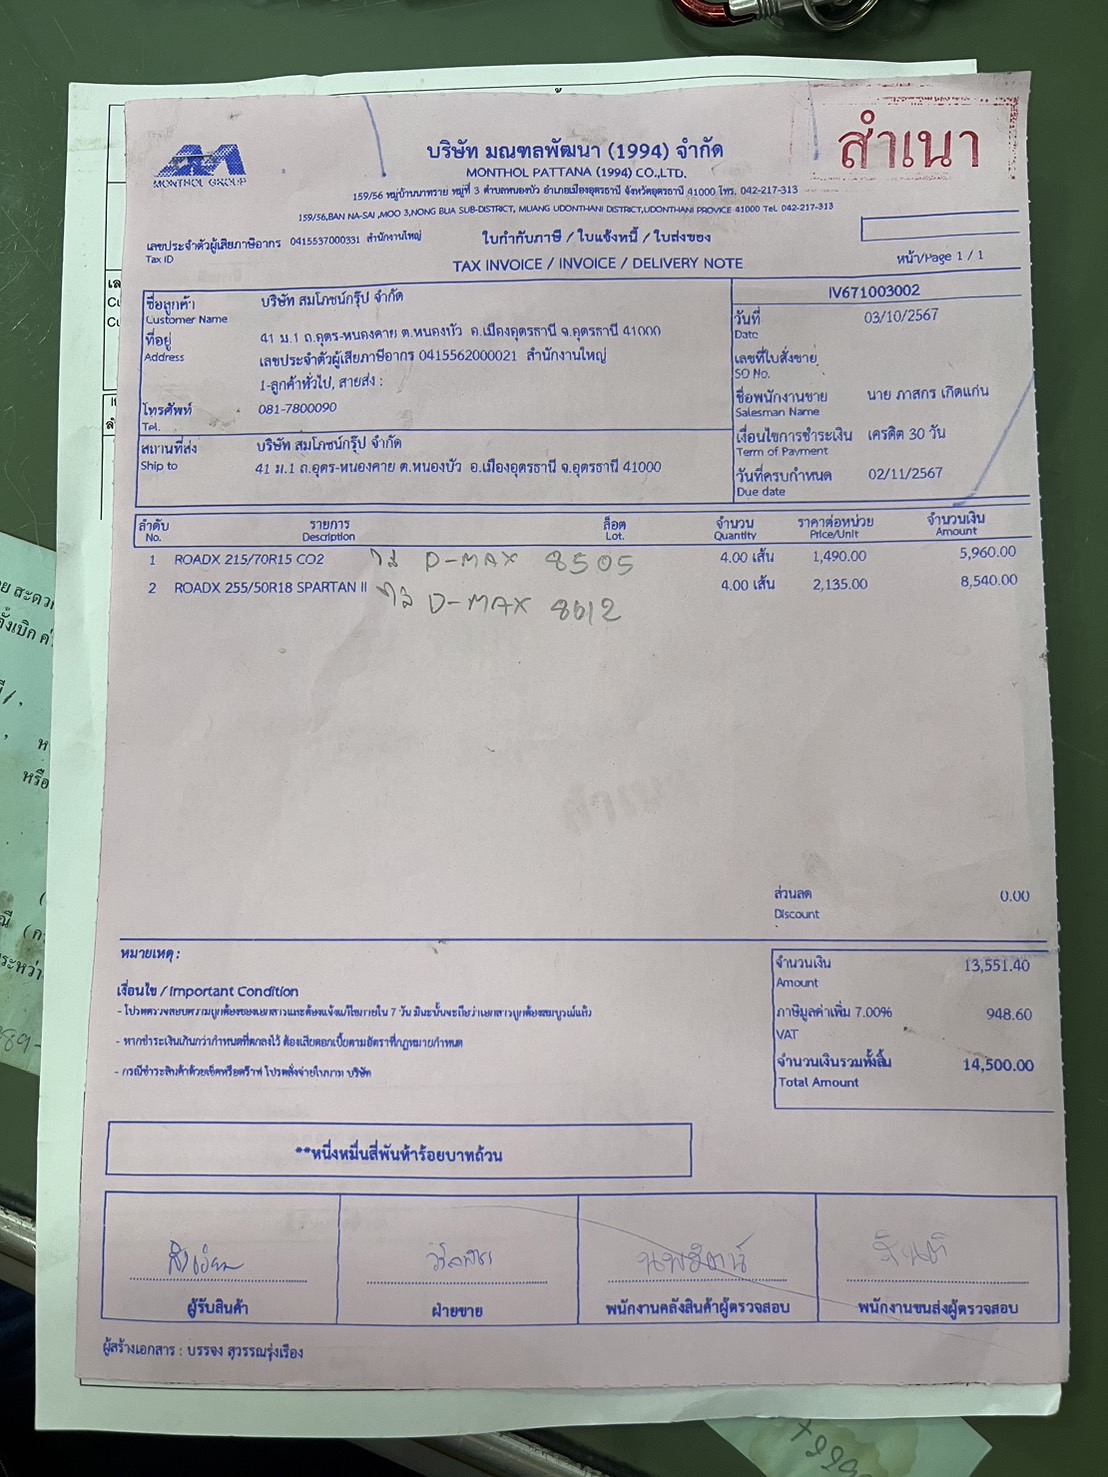 สำเนา
MONTHOL GROUP
บริษัท มณฑลพัฒนา (1994) จำกัด
MONTHOL PATTANA (1994) CO.,LTD.
159/56 หมู่บ้านนาทราย หมู่ที่ 3 ตำบลหนองบัว อำเภอเมืองอุดรธานี จังหวัดอุดรธานี 41000 โทร. 042-217-313
159/56,BAN NA-SAI ,MOO 3,NONG BUA SUB-DISTRICT, MUANG UDONTHANI DISTRICT,UDONTHANI PROVICE 41000 Tel. 042-217-313
เลขประจำตัวผู้เสียภาษีอากร 0415537000331 สำนักงานใหญ่
Tax ID
ใบกำกับภาษี / ใบแจ้งหนี้ / ใบส่งของ
TAX INVOICE / INVOICE / DELIVERY NOTE
หน้า/Page 1 / 1
ชื่อลูกค้า บริษัท สมโภชน์กรุ๊ป จำกัด
Customer Name
ที่อยู่ 41 ม.1 ถ.อุดร-หนองคาย ต.หนองบัว อ.เมืองอุดรธานี จ.อุดรธานี 41000
Address เลขประจำตัวผู้เสียภาษีอากร 0415562000021 สำนักงานใหญ่
1-ลูกค้าทั่วไป, สายส่ง :
โทรศัพท์ 081-7800090
Tel.
สถานที่ส่ง บริษัท สมโภชน์กรุ๊ป จำกัด
Ship to 41 ม.1 ถ.อุดร-หนองคาย ต.หนองบัว อ.เมืองอุดรธานี จ.อุดรธานี 41000
IV671003002
วันที่ 03/10/2567
Date
เลขที่ใบสั่งขาย
SO No.
ชื่อพนักงานขาย นาย ภาสกร เกิดแก่น
Salesman Name
เงื่อนไขการชำระเงิน เครดิต 30 วัน
Term of Payment
วันที่ครบกำหนด 02/11/2567
Due date
ลำดับ รายการ ล็อต จำนวน ราคาต่อหน่วย จำนวนเงิน
No. Description Lot. Quantity Price/Unit Amount
1 ROADX 215/70R15 CO2 ใส่ D-MAX 8505 4.00 เส้น 1,490.00 5,960.00
2 ROADX 255/50R18 SPARTAN II ใส่ D-MAX 8612 4.00 เส้น 2,135.00 8,540.00
ส่วนลด 0.00
Discount
หมายเหตุ :
เงื่อนไข / Important Condition
- โปรดตรวจสอบความถูกต้องของเอกสารและต้องแจ้งแก้ไขภายใน 7 วัน มิฉะนั้นจะถือว่าเอกสารถูกต้องสมบูรณ์แล้ว
- หากชำระเงินเกินกว่ากำหนดที่ตกลงไว้ ต้องเสียดอกเบี้ยตามอัตราที่กฎหมายกำหนด
- กรณีชำระสินค้าด้วยเช็คหรือดร๊าฟ โปรดสั่งจ่ายในนาม บริษัท
จำนวนเงิน 13,551.40
Amount
ภาษีมูลค่าเพิ่ม 7.00% 948.60
VAT
จำนวนเงินรวมทั้งสิ้น 14,500.00
Total Amount
**หนึ่งหมื่นสี่พันห้าร้อยบาทถ้วน
ผู้รับสินค้า ฝ่ายขาย พนักงานคลังสินค้าผู้ตรวจสอบ พนักงานขนส่งผู้ตรวจสอบ
ผู้สร้างเอกสาร : บรรจง สุวรรณรุ่งเรือง